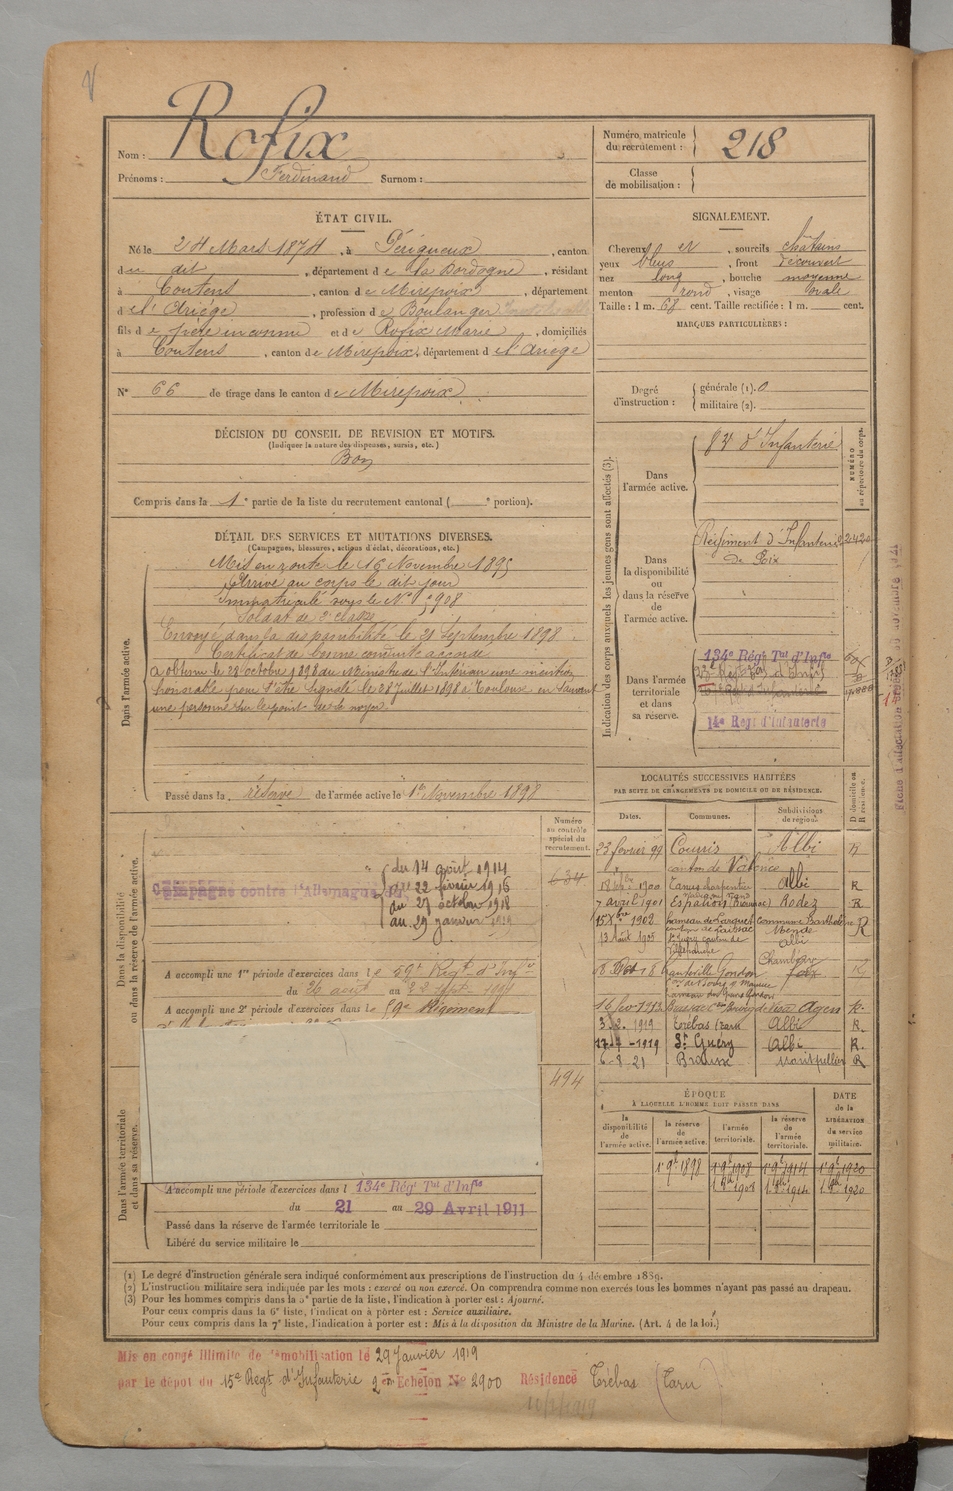 Rofix
Nom :
Prénoms : Ferdinand Surnom :
Numéro matricule du recrutement : 218
Classe de mobilisation :
ÉTAT CIVIL.
Né le 24 Mars 1874, à Périgueux, canton
du dit, département de la Dordogne, résidant
à Coutens, canton de Mirepoix, département
de l'Ariège, profession de Boulanger
fils de père inconnu et de Rofix Marie, domiciliés
à Coutens, canton de Mirepoix, département de l'Ariège
N° 66 de tirage dans le canton de Mirepoix
DÉCISION DU CONSEIL DE REVISION ET MOTIFS.
(Indiquer la nature des dispenses, sursis, etc.)
Bon
Compris dans la 1e partie de la liste du recrutement cantonal ( e portion).
DÉTAIL DES SERVICES ET MUTATIONS DIVERSES.
(Campagnes, blessures, actions d'éclat, décorations, etc.)
Dans l'armée active.
Mis en route le 16 Novembre 1895
Arrivé au corps le dit jour
Immatriculé sous le N° 908
Soldat de 2e classe
Envoyé dans la disponibilité le 21 Septembre 1898.
Certificat de bonne conduite accordé
a obtenu le 28 octobre 1898 du Ministre de l'Intérieur une mention
honorable pour s'être signalé le 28 Juillet 1898 à Toulouse en sauvant
une personne sur le point de se noyer.
Passé dans la réserve de l'armée active le 1er Novembre 1898
Dans la disponibilité ou dans la réserve de l'armée active.
Numéro au contrôle spécial du recrutement.
634
Campagne contre l'Allemagne
du 14 août 1914
au 22 février 1916
du 27 octobre 1918
au 29 janvier 1919
A accompli une 1re période d'exercices dans le 59e Régt d'Infie
du 26 août au 22 sept 1901
A accompli une 2e période d'exercices dans le 59e Régiment
494
Dans l'armée territoriale et dans sa réserve.
A accompli une période d'exercices dans l 134e Régt Tal d'Infie
du 21 au 29 Avril 1911
Passé dans la réserve de l'armée territoriale le
Libéré du service militaire le
SIGNALEMENT.
Cheveux et, sourcils châtains
yeux bleus, front découvert
nez long, bouche moyenne
menton rond, visage ovale
Taille : 1 m. 68 cent. Taille rectifiée : 1 m. cent.
MARQUES PARTICULIÈRES :
Degré d'instruction : générale (1). 0
militaire (2).
Indication des corps auxquels les jeunes gens sont affectés (3).
NUMÉRO au répertoire du corps.
Dans l'armée active. 83e d'Infanterie
Dans la disponibilité ou dans la réserve de l'armée active. Régiment d'Infanterie 2420
de Foix
Dans l'armée territoriale et dans sa réserve. 134e Régt Tal d'Infie
14e Régt d'Infanterie
LOCALITÉS SUCCESSIVES HABITÉES
PAR SUITE DE CHANGEMENTS DE DOMICILE OU DE RÉSIDENCE.
Dates. Communes. Subdivisions de région. D domicile ou R résidence.
23 février 99 Courris Albi R
canton de Valence
1900 Tanus Albi R
7 avril 1901 Espalion Rodez R
1902 hameau de commune
Mende R
13 Août 1905 Albi
1912 Agen R.
3.2. 1919 Trébas (Tarn Albi R.
17-4-1919 St Guéry Albi R.
6-8 21 Montpellier R
ÉPOQUE
À LAQUELLE L'HOMME DOIT PASSER DANS
la disponibilité de l'armée active. la réserve de l'armée active. l'armée territoriale. la réserve de l'armée territoriale. DATE de la LIBÉRATION du service militaire.
1898 1908 1914 1920
1908 1914 1920
(1) Le degré d'instruction générale sera indiqué conformément aux prescriptions de l'instruction du 4 décembre 1889.
(2) L'instruction militaire sera indiquée par les mots : exercé ou non exercé. On comprendra comme non exercés tous les hommes n'ayant pas passé au drapeau.
(3) Pour les hommes compris dans la 5e partie de la liste, l'indication à porter est : Ajourné.
Pour ceux compris dans la 6e liste, l'indication à porter est : Service auxiliaire.
Pour ceux compris dans la 7e liste, l'indication à porter est : Mis à la disposition du Ministre de la Marine. (Art. 4 de la loi.)
Mis en congé illimité de démobilisation le 29 Janvier 1919
par le dépôt du 15e Régt d'Infanterie 2em Echelon N° 2900 Résidence Trébas (Tarn)